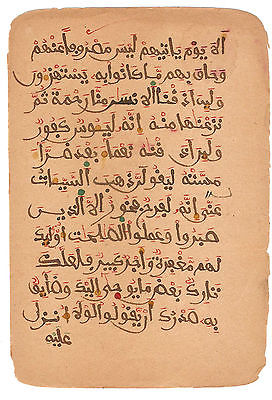 الا يوم ياتيهم ليس مصروفا عنهم
وحاق بهم ما كانوا به يستهزءون
ولين اذقنا الانسن منا رحمة ثم
نزعنها منه انه ليوس كفور
ولين اذقنه نعماء بعد ضراء
مسته ليقولن ذهب السيئات
عني انه لفرح فخور الا الذين
صبروا وعملوا الصلحت اوليك
لهم مغفرة واجر كبير فلعلك
تارك بعض ما يوحى اليك وضايق
به صدرك ان يقولوا لولا انزل
عليه